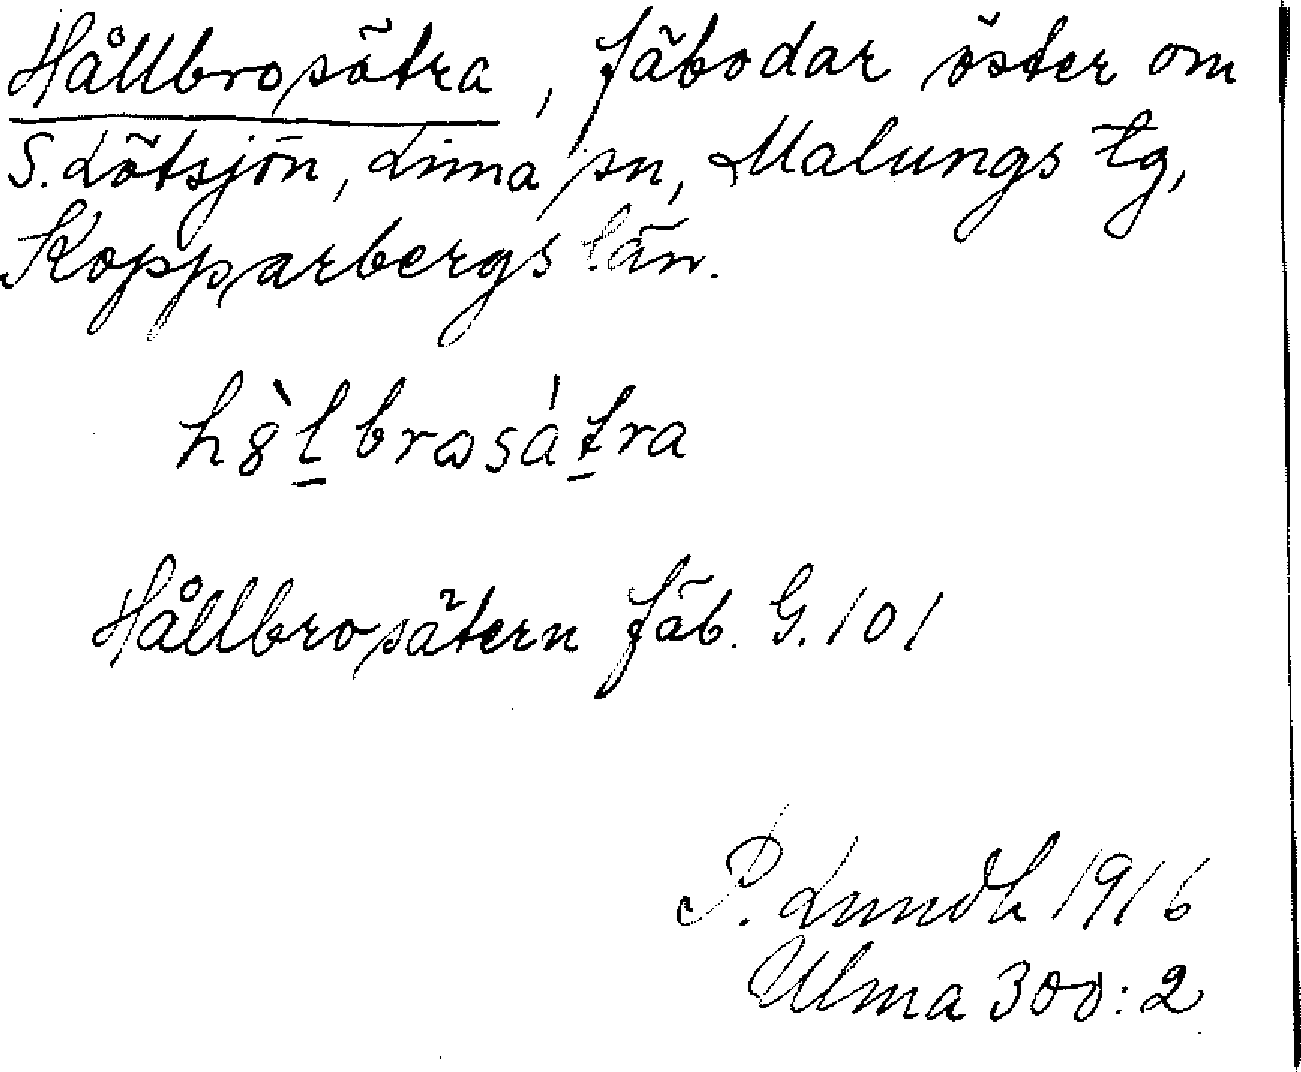 Hållbrosätra, fäbodar öster om
S. Lötsjön, Lima sn, Malungs tg,
Kopparbergs län.
h8̀l̲brɷsát̲ra
Hållbrosätern fäb. G. 101
P. Lundh 1916
Ulma 300:2